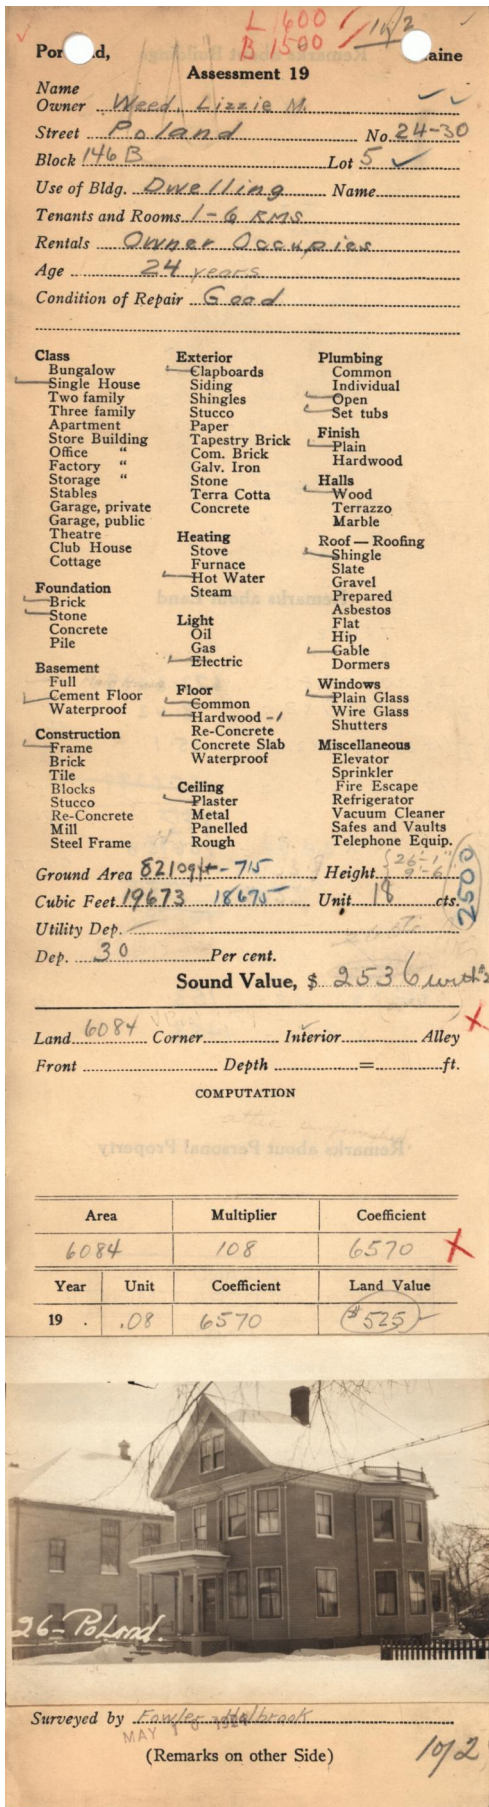 L 1600
B 1500
10/2
Portland, Maine
Assessment 19
Name
Owner Weed, Lizzie M.
Street Poland No. 24-30
Block 146 B Lot 5
Use of Bldg. Dwelling Name
Tenants and Rooms 1-6 RMS
Rentals Owner Occupies
Age 24 years
Condition of Repair Good
Class
Bungalow
Single House
Two family
Three family
Apartment
Store Building
Office "
Factory "
Storage "
Stables
Garage, private
Garage, public
Theatre
Club House
Cottage
Foundation
Brick
Stone
Concrete
Pile
Basement
Full
Cement Floor
Waterproof
Construction
Frame
Brick
Tile
Blocks
Stucco
Re-Concrete
Mill
Steel Frame
Exterior
Clapboards
Siding
Shingles
Stucco
Paper
Tapestry Brick
Com. Brick
Galv. Iron
Stone
Terra Cotta
Concrete
Heating
Stove
Furnace
Hot Water
Steam
Light
Oil
Gas
Electric
Floor
Common
Hardwood -1
Re-Concrete
Concrete Slab
Waterproof
Ceiling
Plaster
Metal
Panelled
Rough
Plumbing
Common
Individual
Open
Set tubs
Finish
Plain
Hardwood
Halls
Wood
Terrazzo
Marble
Roof — Roofing
Shingle
Slate
Gravel
Prepared
Asbestos
Flat
Hip
Gable
Dormers
Windows
Plain Glass
Wire Glass
Shutters
Miscellaneous
Elevator
Sprinkler
Fire Escape
Refrigerator
Vacuum Cleaner
Safes and Vaults
Telephone Equip.
Ground Area 821 - 715 Height 26'-1" 9'-6"
Cubic Feet 19673 18675 Unit 18 cts.
2500
Utility Dep.
Dep. 30 Per cent.
Sound Value, $ 2536
Land 6084 Corner Interior Alley
Front Depth = ft.
COMPUTATION
Area Multiplier Coefficient
6084 108 6570
Year Unit Coefficient Land Value
19 . .08 6570 $525
26-Poland.
Surveyed by Fowler Holbrook
MAY
(Remarks on other Side)
10/2